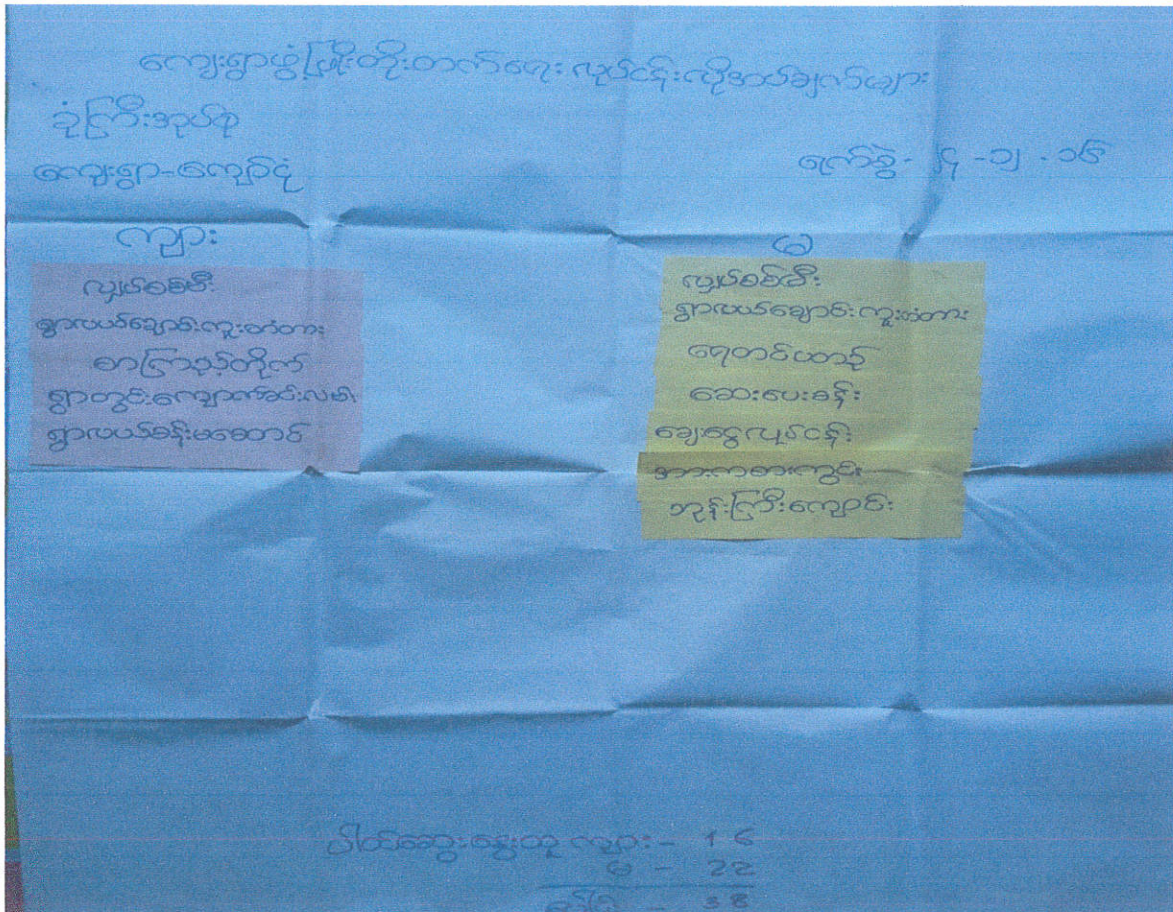 ကျေးရွာဖွံ့ဖြိုးတိုးတက်ရေး လုပ်ငန်းလိုအပ်ချက်များ
ခုံကြီးအုပ်စု
ကျေးရွာ-ကျော်ငုံ
ရက်စွဲ - ၂၄ -၁၂ - ၁၆
ကျား
လျှပ်စစ်မီး
ရွာလယ်ချောင်းကူးတံတား
စာကြည့်တိုက်
ရွာတွင်းကျောက်ခင်းလမ်း
ရွာလယ်ခန်းမဆောင်
မ
လျှပ်စစ်မီး
ရွာလယ်ချောင်းကူးတံတား
ရေတင်ပတာဉ်
ဆေးပေးခန်း
ချေးငွေလုပ်ငန်း
အားကစားကွင်း
ဘုန်းကြီးကျောင်း
ပါဝင်ဆွေးနွေးသူ ကျား - 16
မ - 22
စုစုပေါင်း - 38